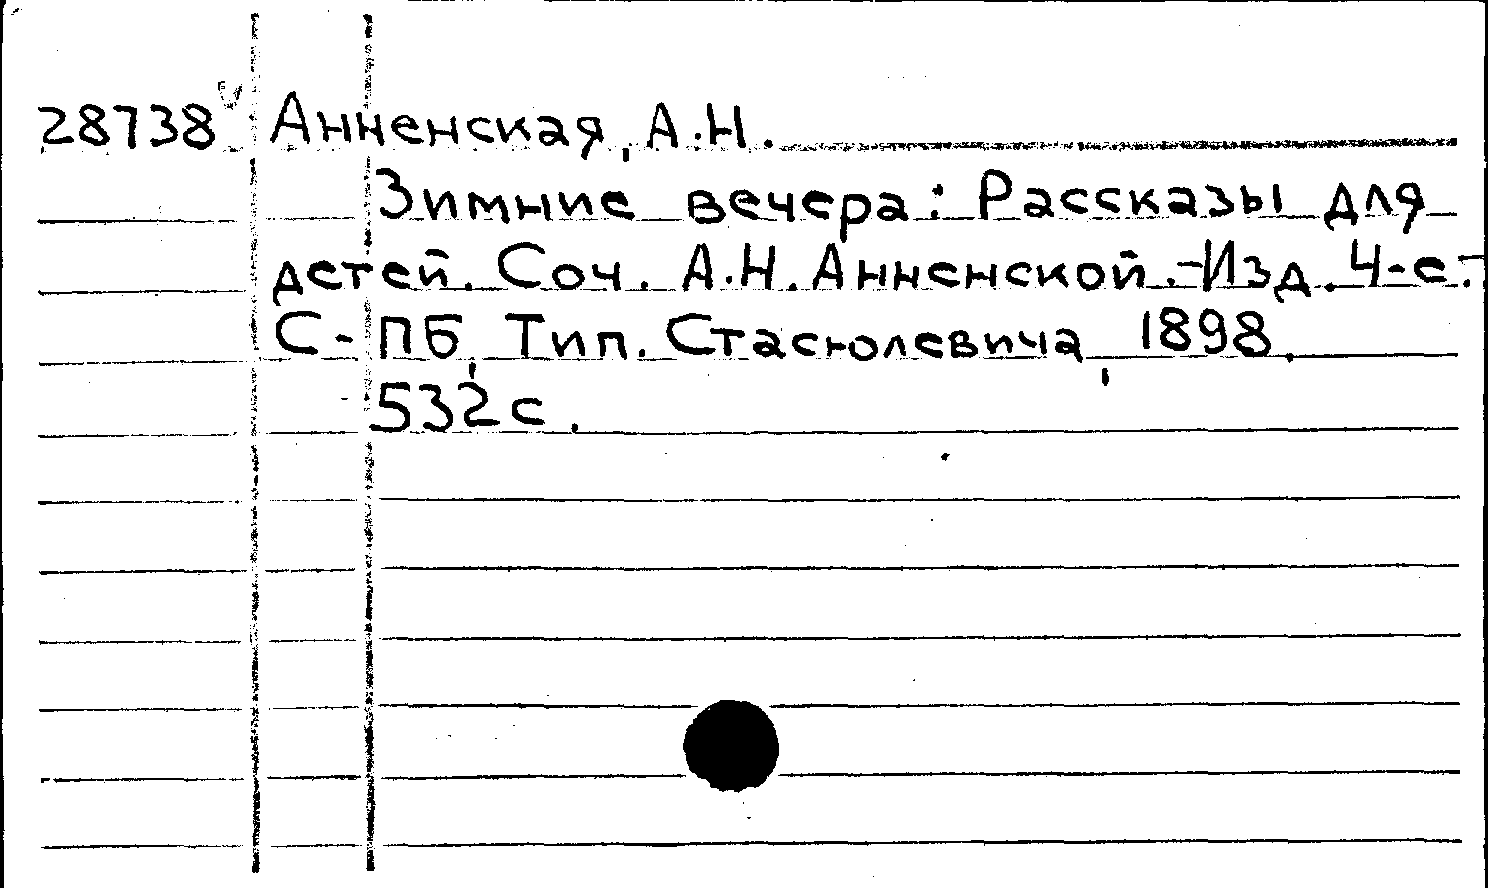 28738 Анненская, А.Н.
Зимние вечера: Рассказы для
детей. Соч. А.Н. Анненской.-Изд. 4-е.-
С-ПБ, Тип. Стасюлевича, 1898.
532 с.